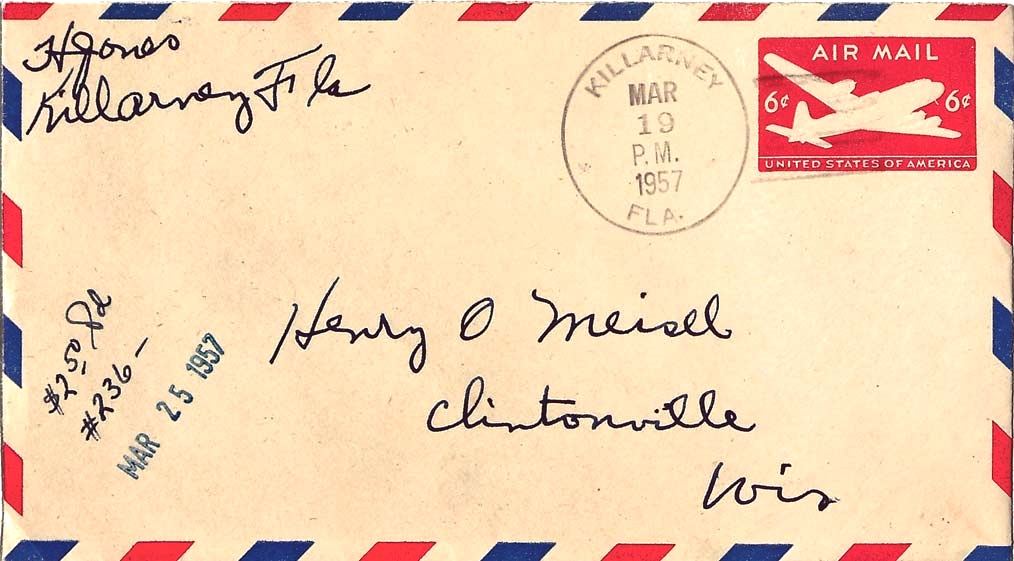 H Jones
Killarney Fla
KILLARNEY
MAR
19
P.M.
1957
FLA.
AIR MAIL
6¢ 6¢
UNITED STATES OF AMERICA
Henry O Meisel
Clintonville
Wis
$2.50 Pd
#236-
MAR 25 1957